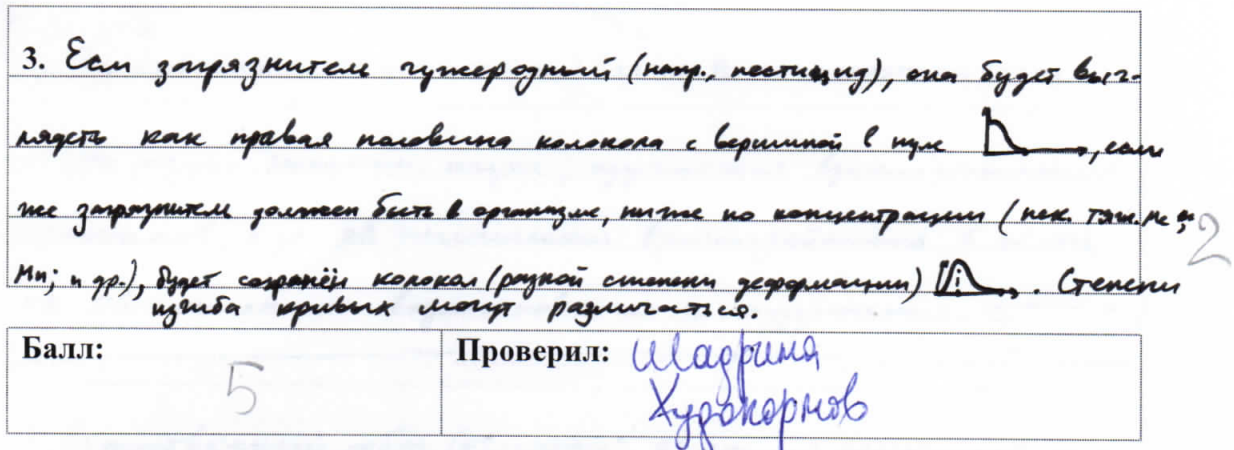 3. Если загрязнитель чужеродный (напр., пестицид), она будет выг-
лядеть как правая половина колокола с вершиной в нуле, если
же загрязнитель должен быть в организме, ниже по концентрации (нек. тяж.
2
Mn; и др.), будет сохранён колокол (разной степени деформации). Степени
изгиба кривых могут различаться.
Балл:
5
Проверил: Шадрина
Худокормов